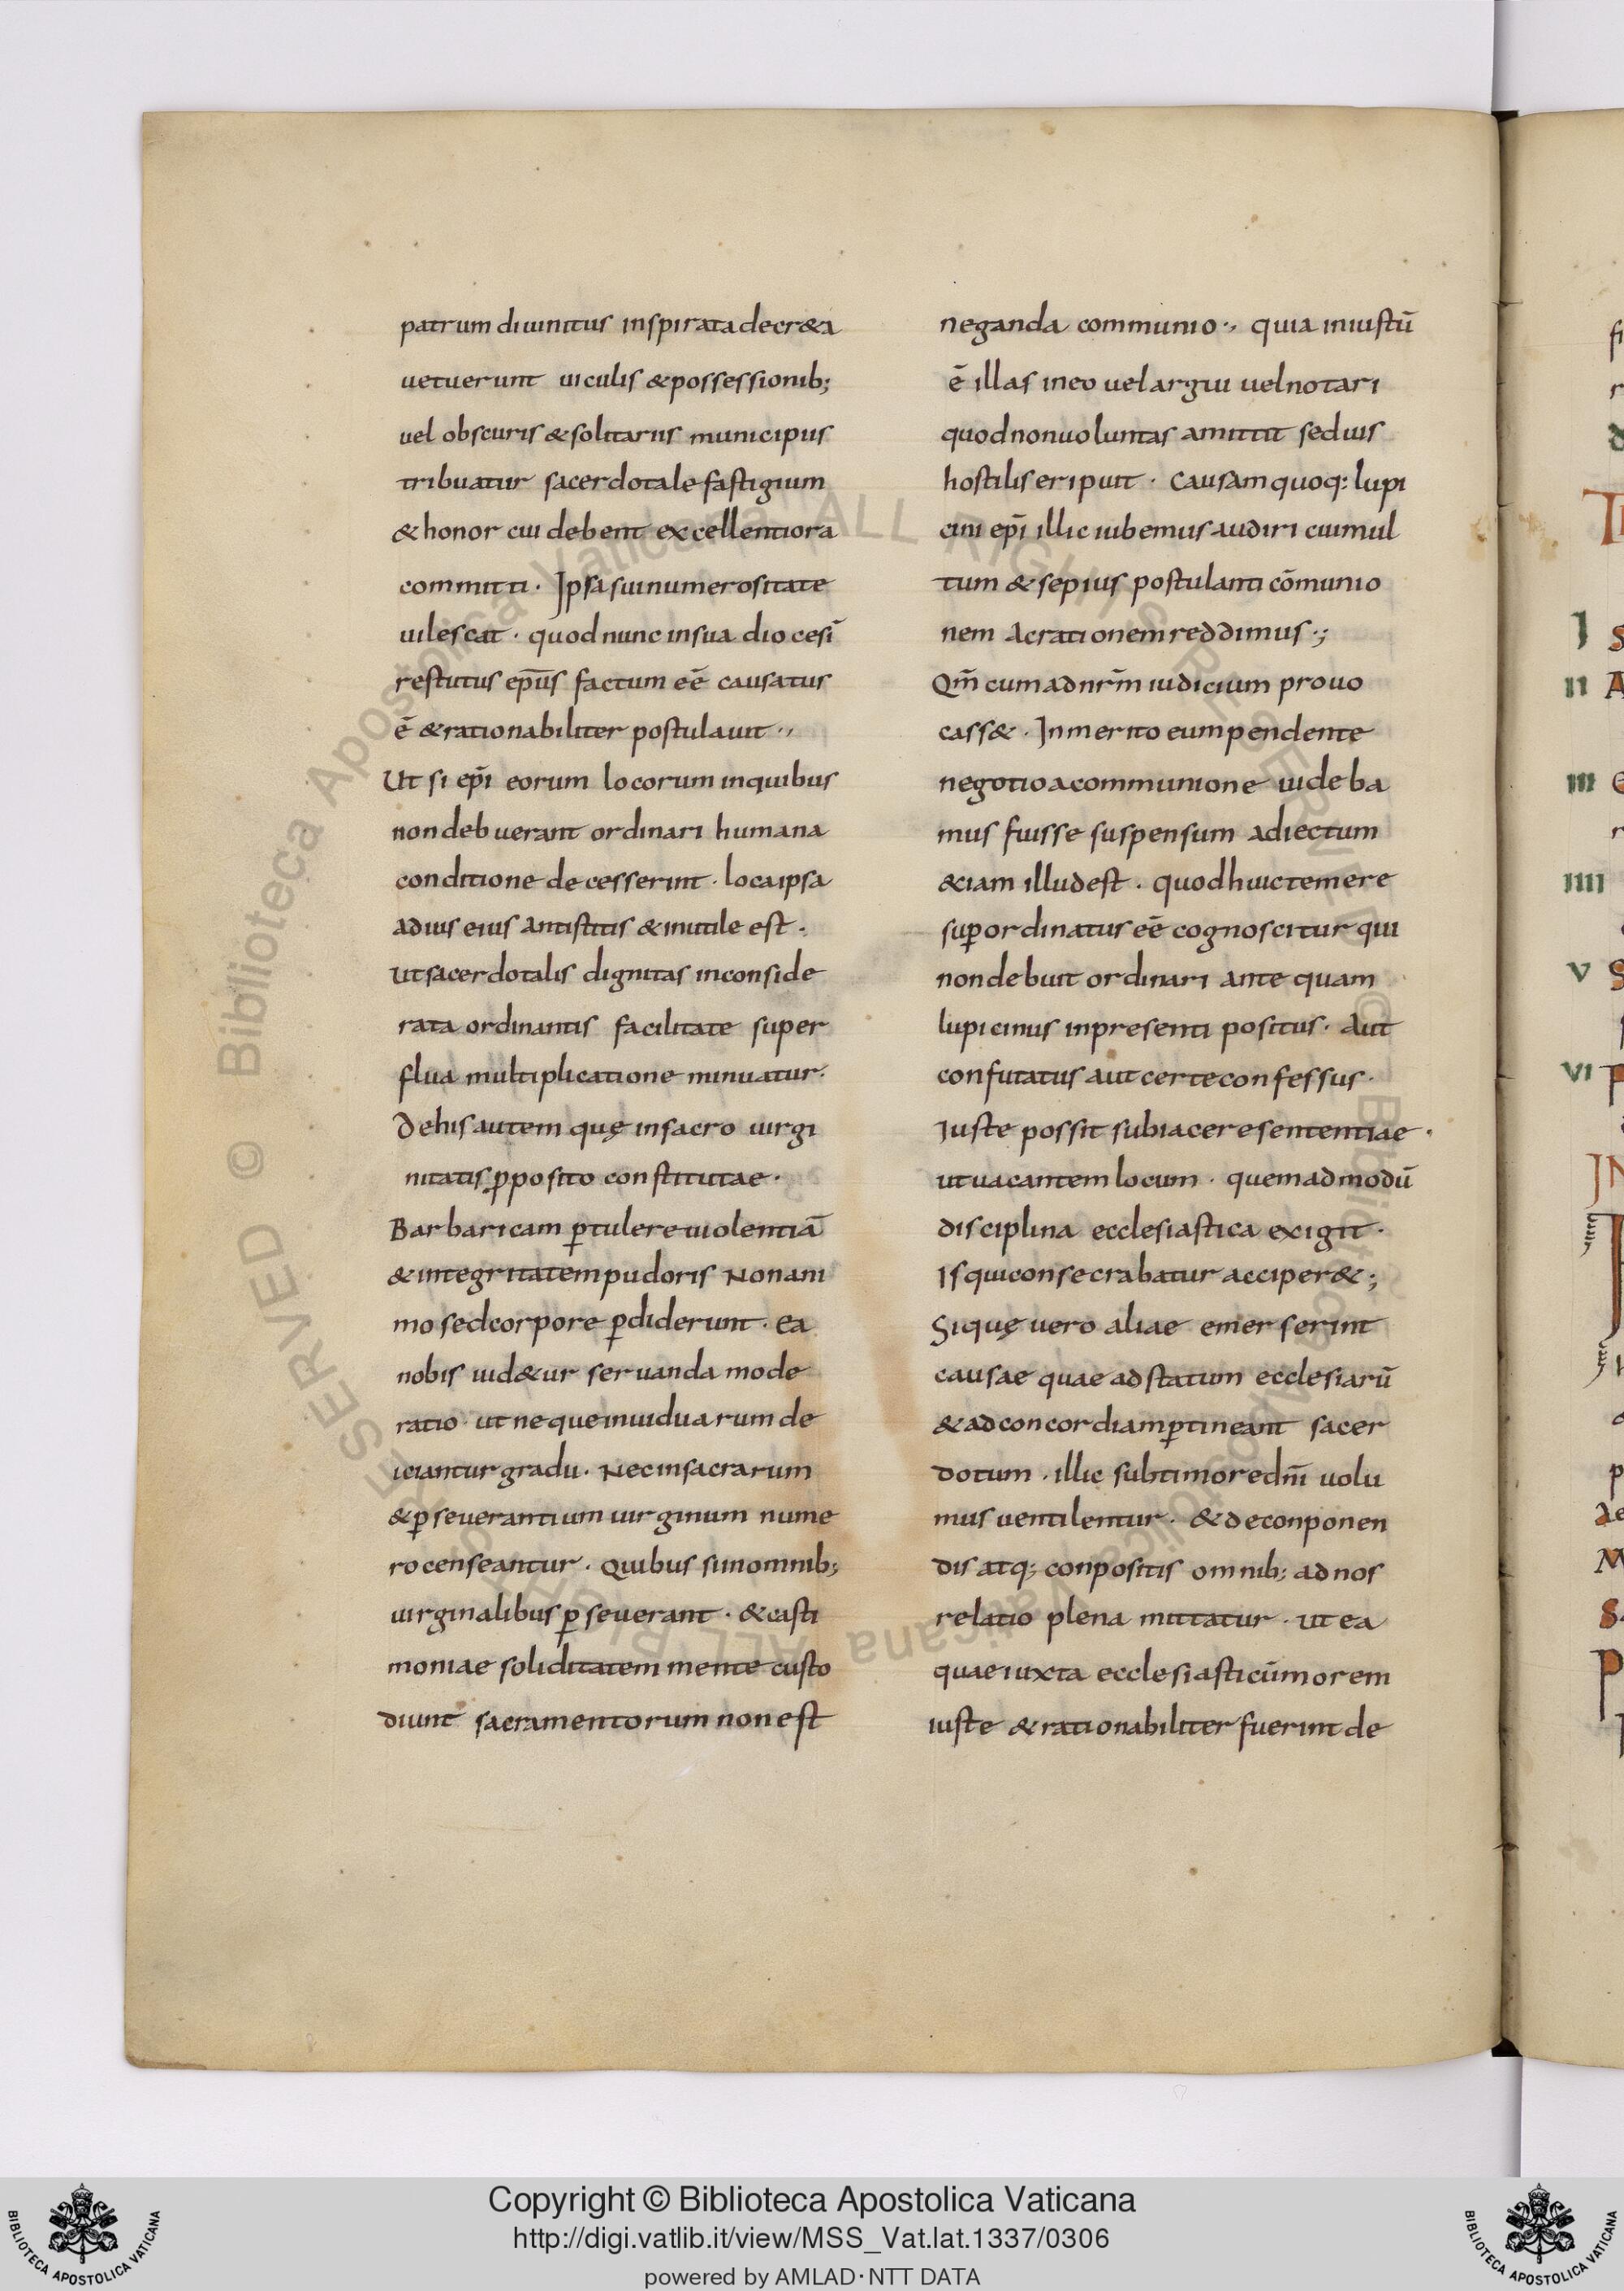 patrum diuinitus inspirata decr&a
uetuerunt uiculis & possessionib;
uel obscuris & solitariis municipiis
tribuatur sacerdotale fastigium
& honor cui debent excellentiora
committi · Ipsa sui numerositate
uilescat · quod nunc in sua diocesī
restitutus ep̅us factum eē causatus
ē & rationabiliter postulauit ·,
Ut si ep̅i eorum locorum in quibus
non debuerant ordinari humana
conditione decesserint · loca ipsa
ad ius eius antistitis & inutile est ·
ut sacerdotalis dignitas inconside
rata ordinantis facilitate super
flua multiplicatione minuatur·
De his autem quę in sacro uirgi
nitatis p̱posito constitutae ·
Barbaricam p̱tulere uiolentiā
& integritatem pudoris Non ani
mo sed corpore p̱diderunt · ea
nobis uid&ur seruanda mode
ratio · ut neque in uiduarum de
iciantur gradu · Nec in sacrarum
& p̱seuerantium uirginum nume
ro censeantur · Quibus si in omnib;
uirginalibus p̱seuerant · & casti
moniae soliditatem mente custo
diunt sacramentorum non est
neganda communio ·, quia iniustū
ē illas in eo uel argui uel notari
quod non uoluntas amittit sed uis
hostilis eripuit · Causam quoq: lupi
cini ep̅i illic iubemus audiri cui mul
tum & sepius postulanti cōmunio
nem Ac rationem reddimus ·;
Qm̄ cum ad nr̄m iudicium prouo
cass& · Inmerito eum pendente
negotio a communione uideba
mus fuisse suspensum adiectum
&iam illud est · quod huic temere
sup̱ordinatus eē cognoscitur qui
non debuit ordinari ante quam
lupicinus in presenti positus · Aut
confutatus aut certe confessus ·
Iuste possit subiacere sententiae ·
ut uacantem locum · quemadmodū
disciplina ecclesiastica exigit ·
Is qui consecrabatur acciper& ;
Si quę uero aliae emerserint
causae quae ad statum ecclesiarū
& ad concordiam p̱tineant sacer
dotum · illic sub timore dn̄i uolu
mus uentilentur · & de conponen
dis atq; conpositis omnib; ad nos
relatio plena mittatur · ut ea
quae iuxta ecclesiasticūmorem
iuste & rationabiliter fuerint de
I
II
III
IIII
V
VI
© Biblioteca Apostolica Vaticana ALL RIGHTS RESERVED
© Biblioteca Apostolica Vaticana ALL RIGHTS RESERVED
Copyright © Biblioteca Apostolica Vaticana
http://digi.vatlib.it/view/MSS_Vat.lat.1337/0306
powered by AMLAD·NTT DATA
BIBLIOTECA APOSTOLICA VATICANA
BIBLIOTECA APOSTOLICA VATICANA